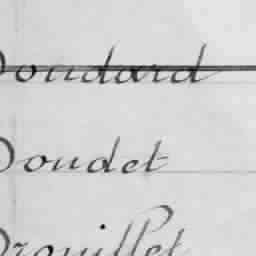 Doudard
Doudet
Drouillet